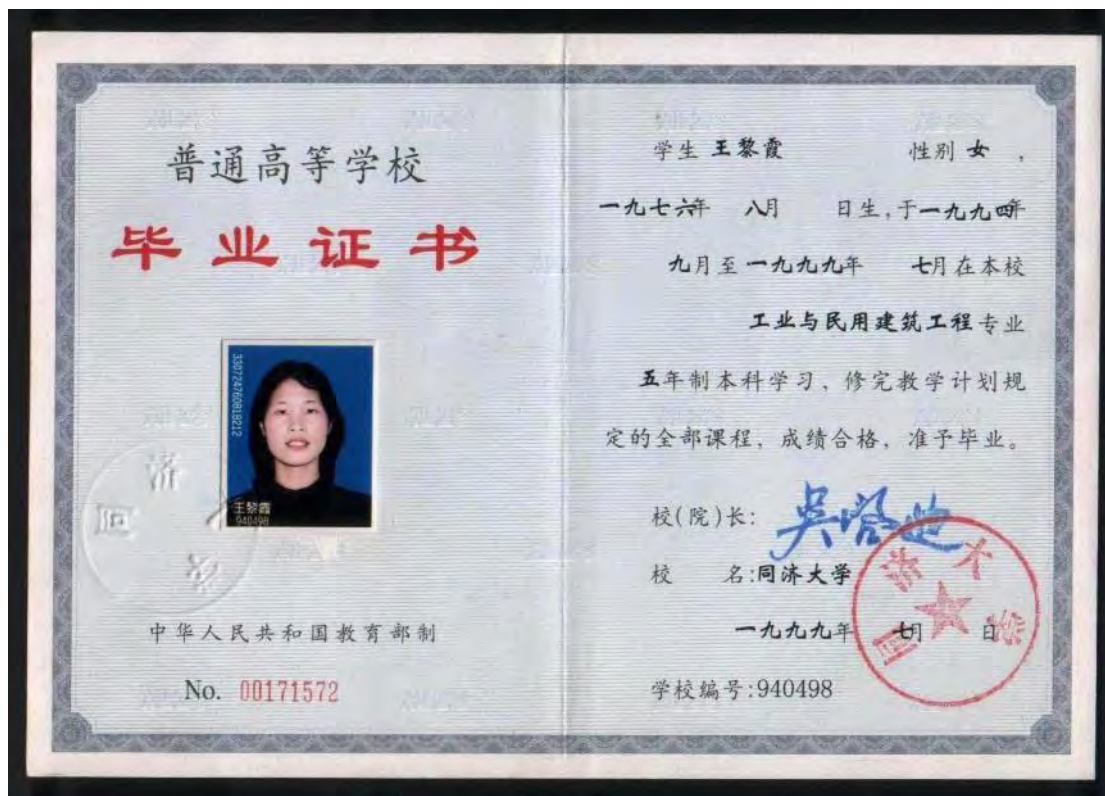 普通高等学校
毕业证书
330724760818212
王黎霞
940498
中华人民共和国教育部制
No. 00171572
学生 王黎霞 性别 女 ,
一九七六年 八月 日生,于一九九四年
九月至一九九九年 七月在本校
工业与民用建筑工程专业
五年制本科学习、修完教学计划规
定的全部课程, 成绩合格, 准予毕业。
校(院)长:
校 名:同济大学
一九九九年 七月 日
学校编号:940498
同济大学
同济大学